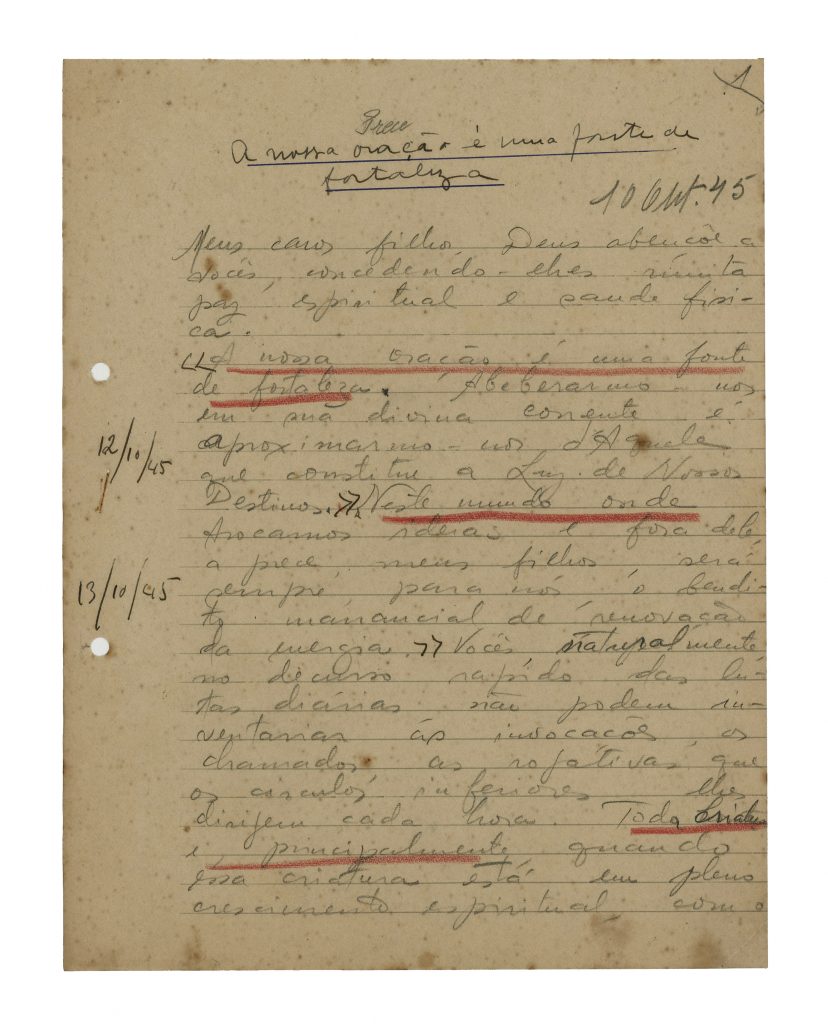 1
Prece
A nossa oração é uma fonte de
fortaliza
10 Out. 45
Meus caros filhos, Deus abençôe a
vocês, concedendo-lhes muita
paz espiritual e saude fisi-
ca.
<<A nossa oração é uma fonte
de fortaleza. Abeberarmo-nos
em sua divina corrente é
aproximarmo-nos d'Aquele
12/10/45
que constitue a Luz de Nossos
Destinos.>> Neste mundo onde
trocamos ideias e fora dele
a prece, meus filhos, será
13/10/45
sempre, para nós o bendi-
to manancial de renovação
da energia.>> Vocês naturalmente
no decurso rapido das lu-
tas diárias não podem in-
ventariar as invocações, os
chamados as rogativas que
os circulos inferiores lhes
dirijem cada hora. Toda criatura
e principalmente quando
essa criatura está em pleno
crescimento espiritual, com o